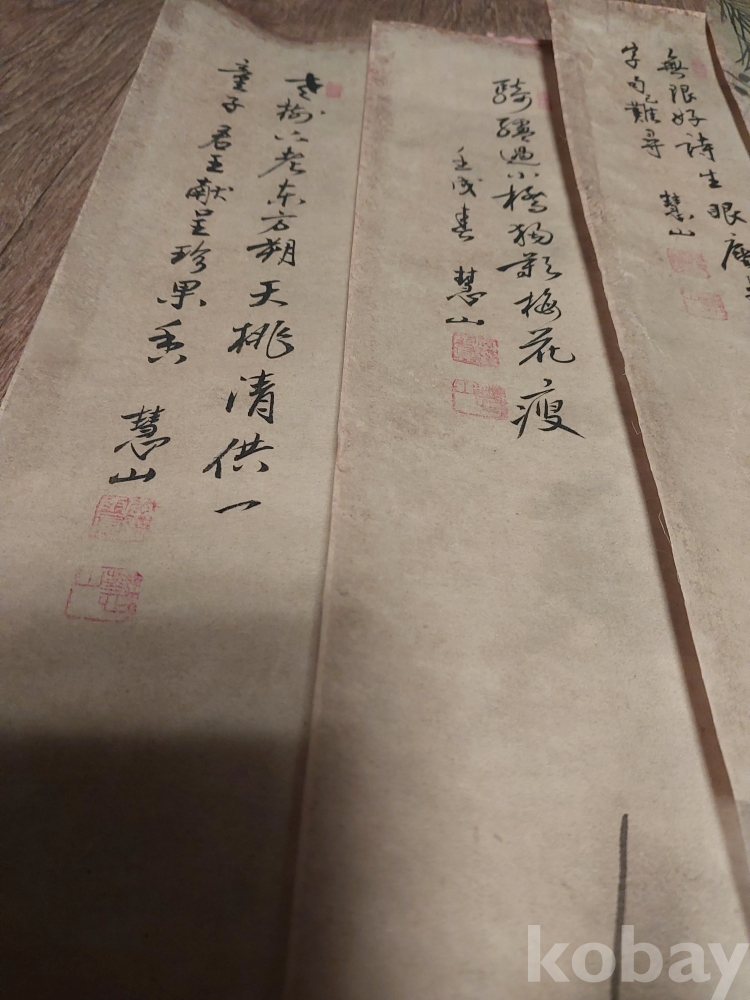 方朔天桃清供一
童子君王献呈珍果香
慧山
騎驢過小橋獨歎梅花瘦
壬戌春 慧山
無限好詩生眼
字句已難尋
慧山
kobay